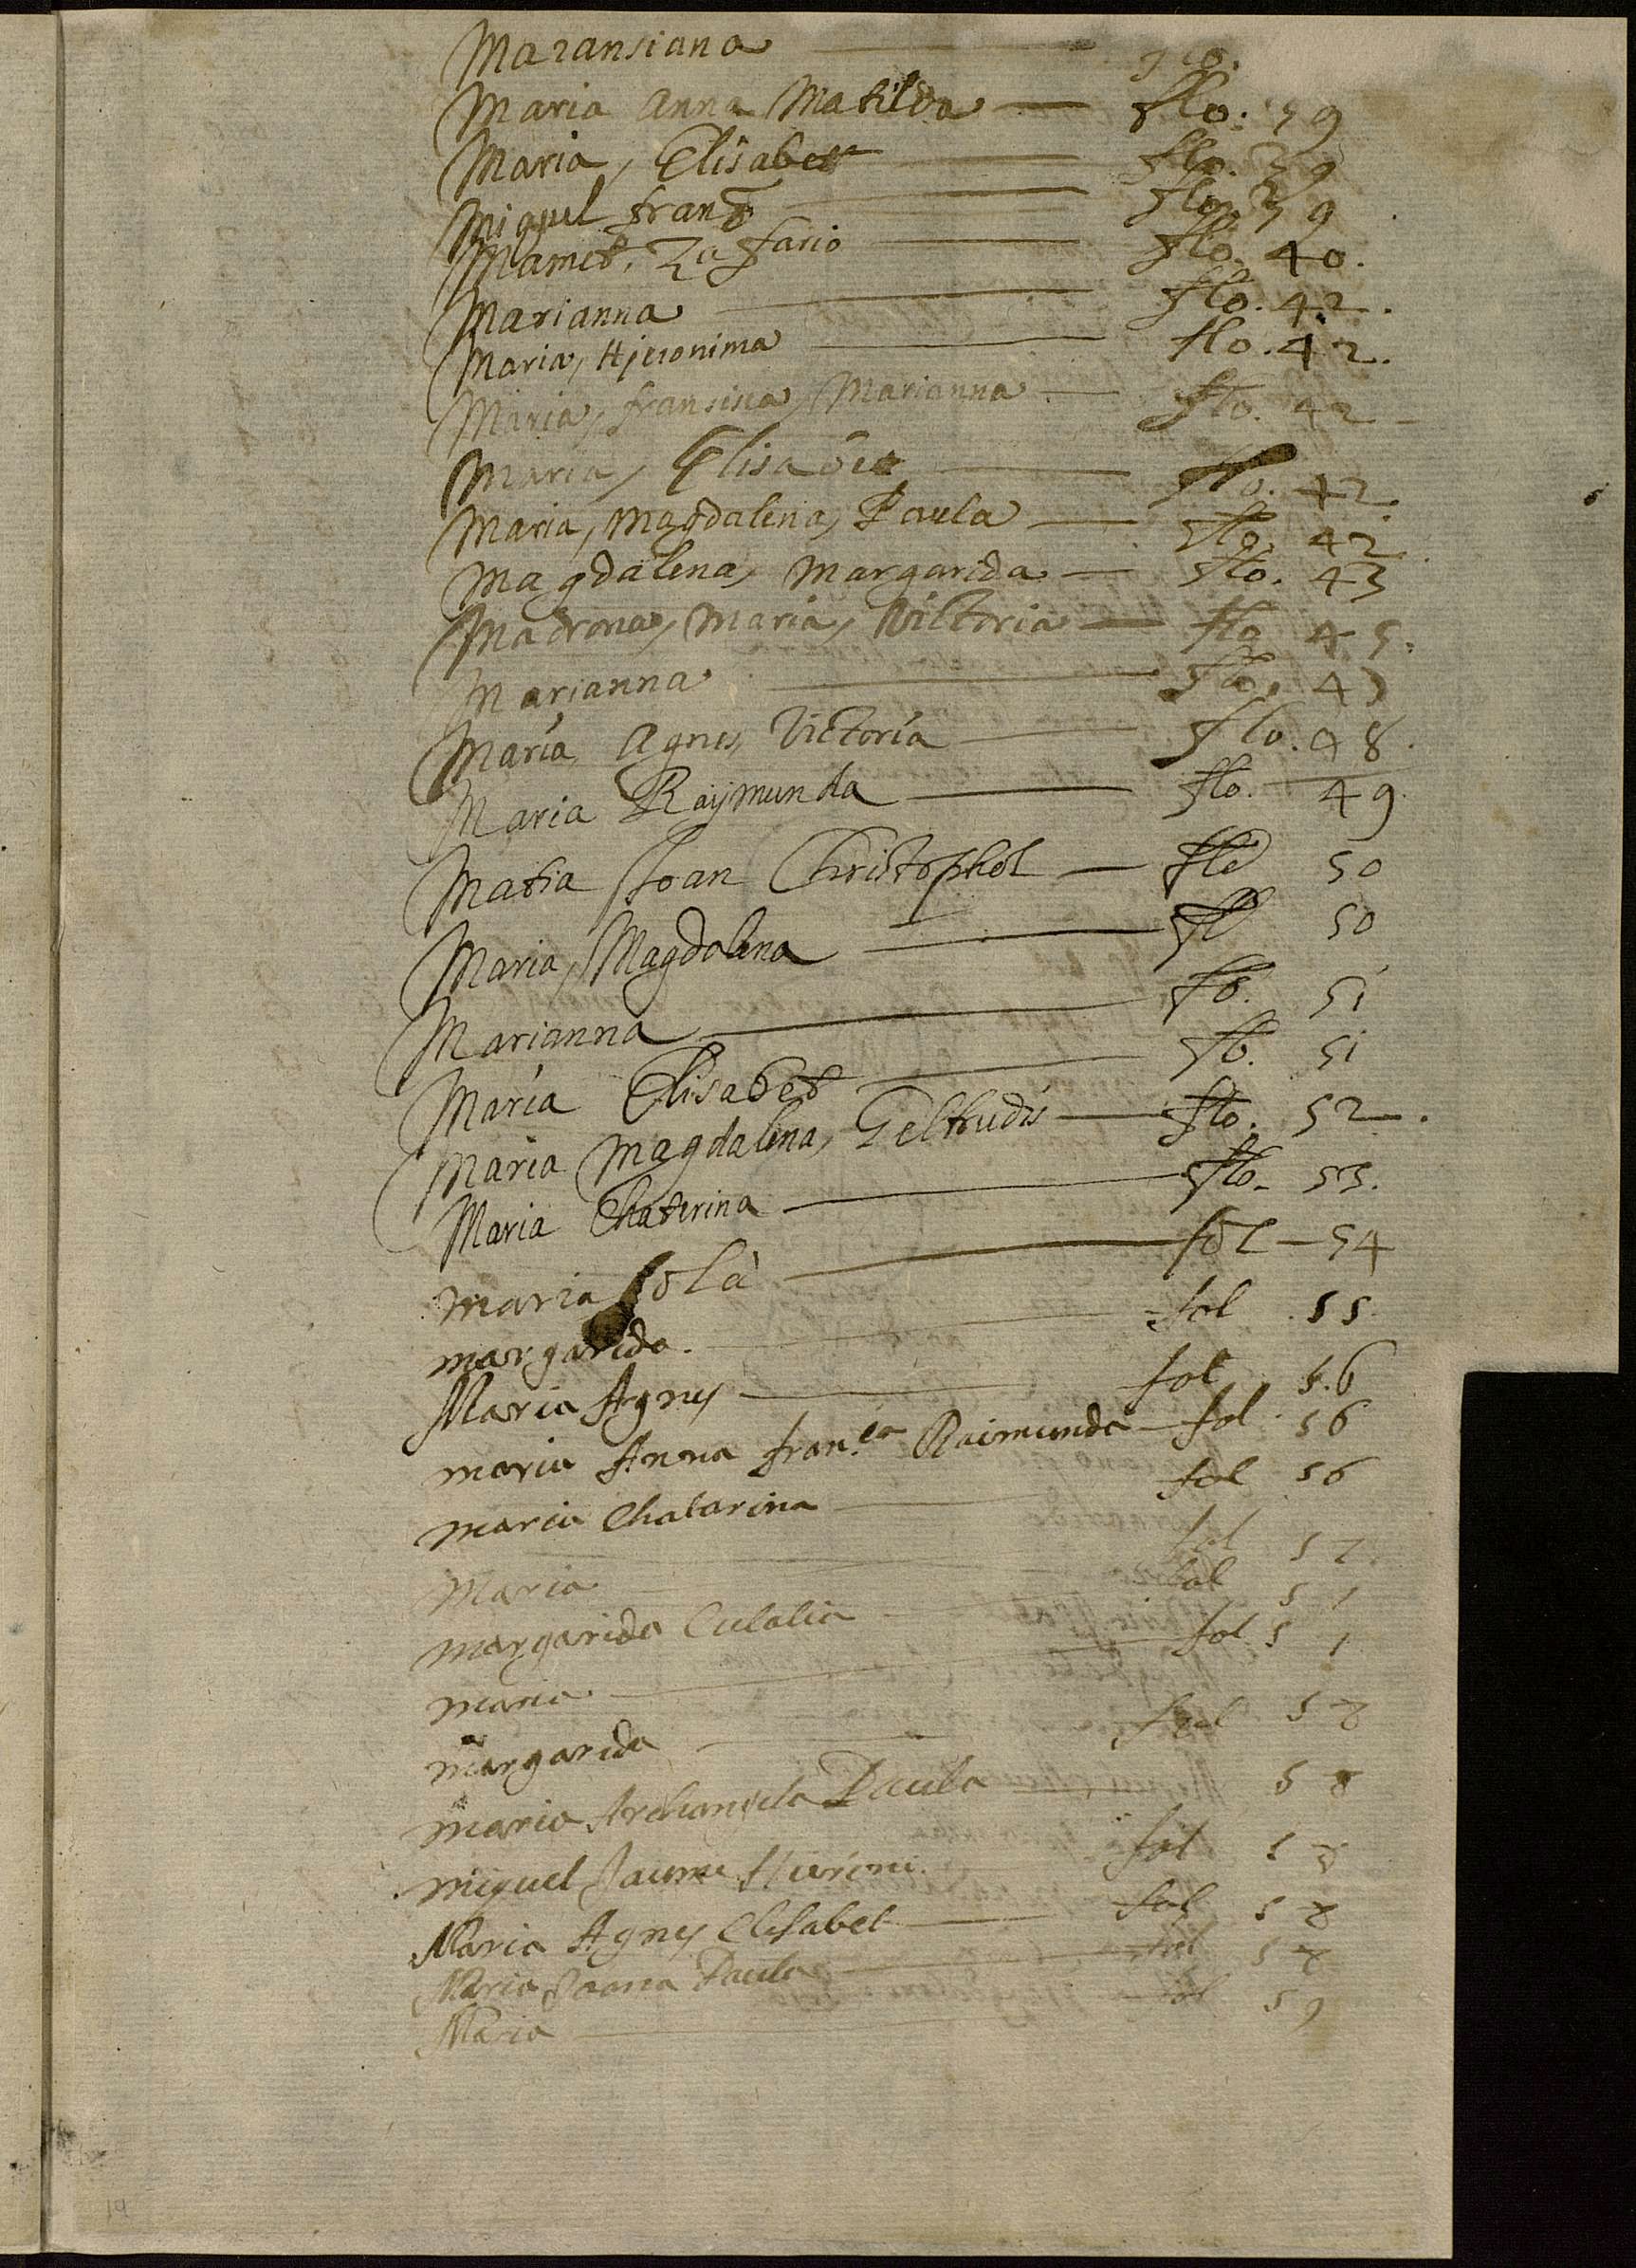 Maransiana —
Maria Anna Matilda — flo: 39
Maria, Elisabet — flo. 39
Miquel fran͠ — flo. 39
Mamet, Zafario — flo. 40.
Marianna — flo. 42.
Maria, Hjeronima — flo. 42.
Maria, fransisca, Marianna — flo. 42
Maria, Elisabet — flo. 42.
Maria, Magdalena, Paula — flo. 42
Magdalena, Margarida — flo. 43
Madrona, Maria, Victoria — flo 45.
Marianna — flo. 45
Maria, Agnes, Victoria — flo. 48.
Maria Raymunda — flo. 49.
Matia Joan Christophol — flo 50
Maria, Magdalena — flo 50
Marianna — flo. 51
Maria Elisabet — flo. 51
Maria Magdalena, Geltrudis — flo. 52.
Maria Chaterina — flo. 53.
Maria Solà — fol — 54
margarida. — fol 55
Maria Agnes — fol 56
maria Anna fran.ca Raimunda — fol 56
maria Chatarina — fol 56
Maria — fol 57
margarida Eulalia — fol 57
maria — fol 57
margarida — fol 58
maria Archangela Paula — 58
miquel Jaume Hieroni. fol 58
Maria Agnes Elisabet — fol 58
Maria Joana Paula — fol 58
Maria — fol 59
14